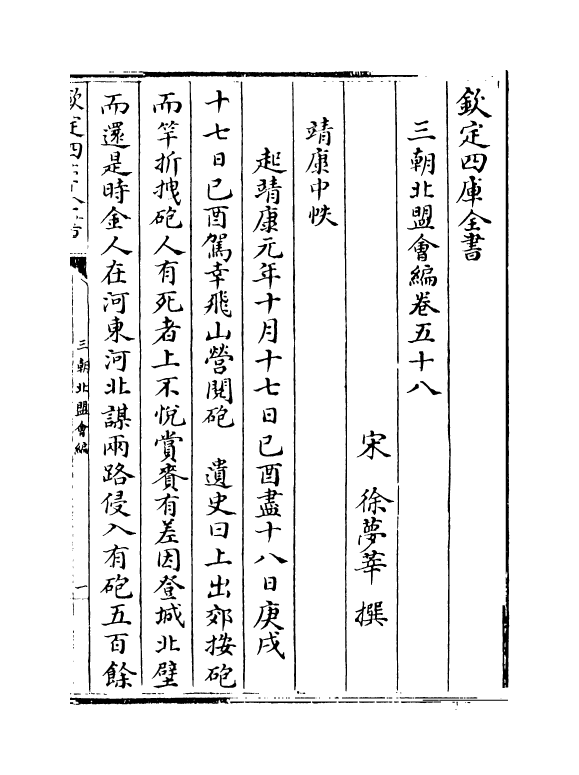 欽定四庫全書
三朝北盟會編卷五十八
宋 徐夢莘 撰
靖康中帙
起靖康元年十月十七日已酉盡十八日庚戌
十七日已酉駕幸飛山營閱砲 遺史曰上出郊按砲
而竿折拽砲人有死者上不悅賞賚有差因登城北壁
而還是時金人在河東河北謀兩路侵入有砲五百餘
三朝北盟會編
一